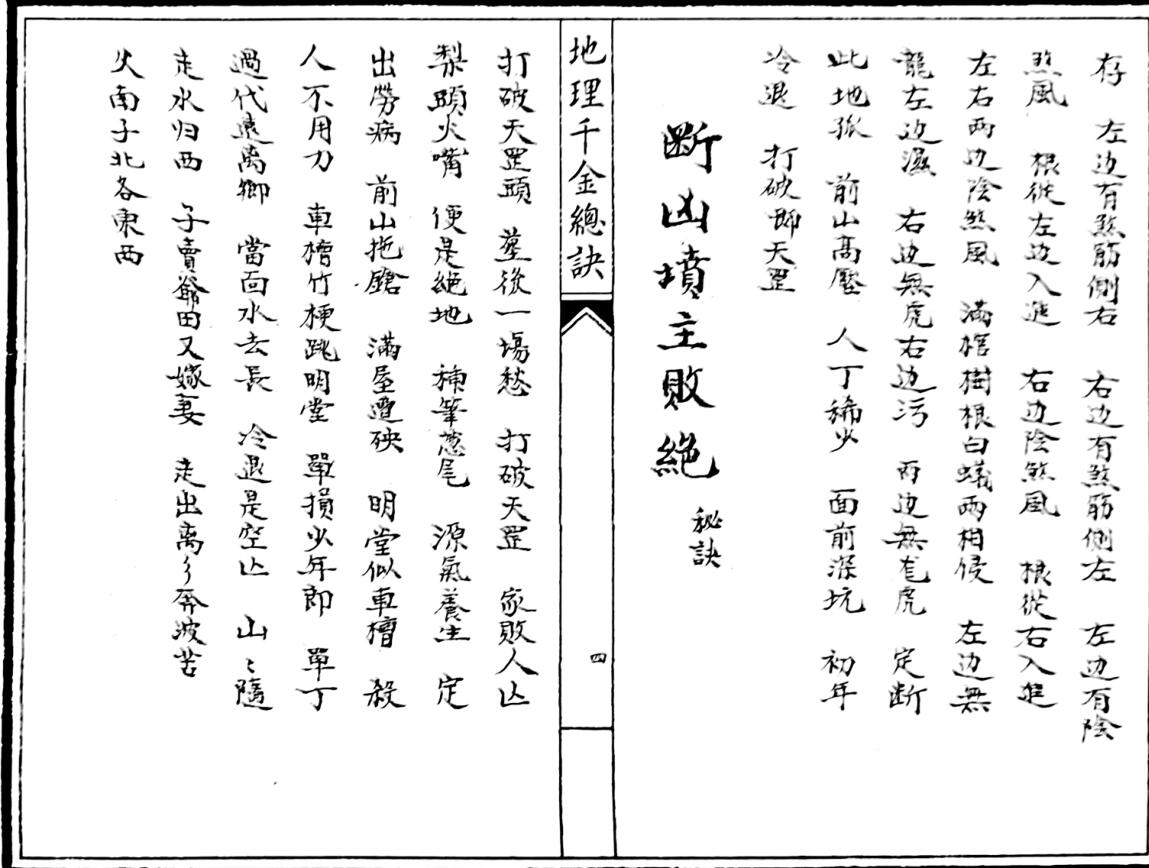 存 左边有煞筋側右 右边有煞筋側左 左边有陰
煞風 根從左边入進 右边陰煞風 根從右入進
左右两边陰煞風 滿棺樹根白蟻两相侵 左边無
龍左边濕 右边無虎右边污 两边無龙虎 定断
此地孤 前山高壓 人丁稀少 面前深坑 初年
冷退 打破即天罡
断凶墳主敗絕 秘訣
地理千金總訣
四
打破天罡頭 墓後一塲愁 打破天罡 家敗人亾
梨頭火嘴 便是絕地 秭筆葱尾 源氣養生 定
出勞病 前山拖鎗 滿屋遭殃 明堂似車檀 殺
人不用刀 車檐竹梗跳明堂 單損少年郎 單丁
過代遠离鄉 當面水去長 冷退是空亾 山々隨
走水归西 子賣爺田又嫁妻 走出离乡奔波苦
父南子北各東西